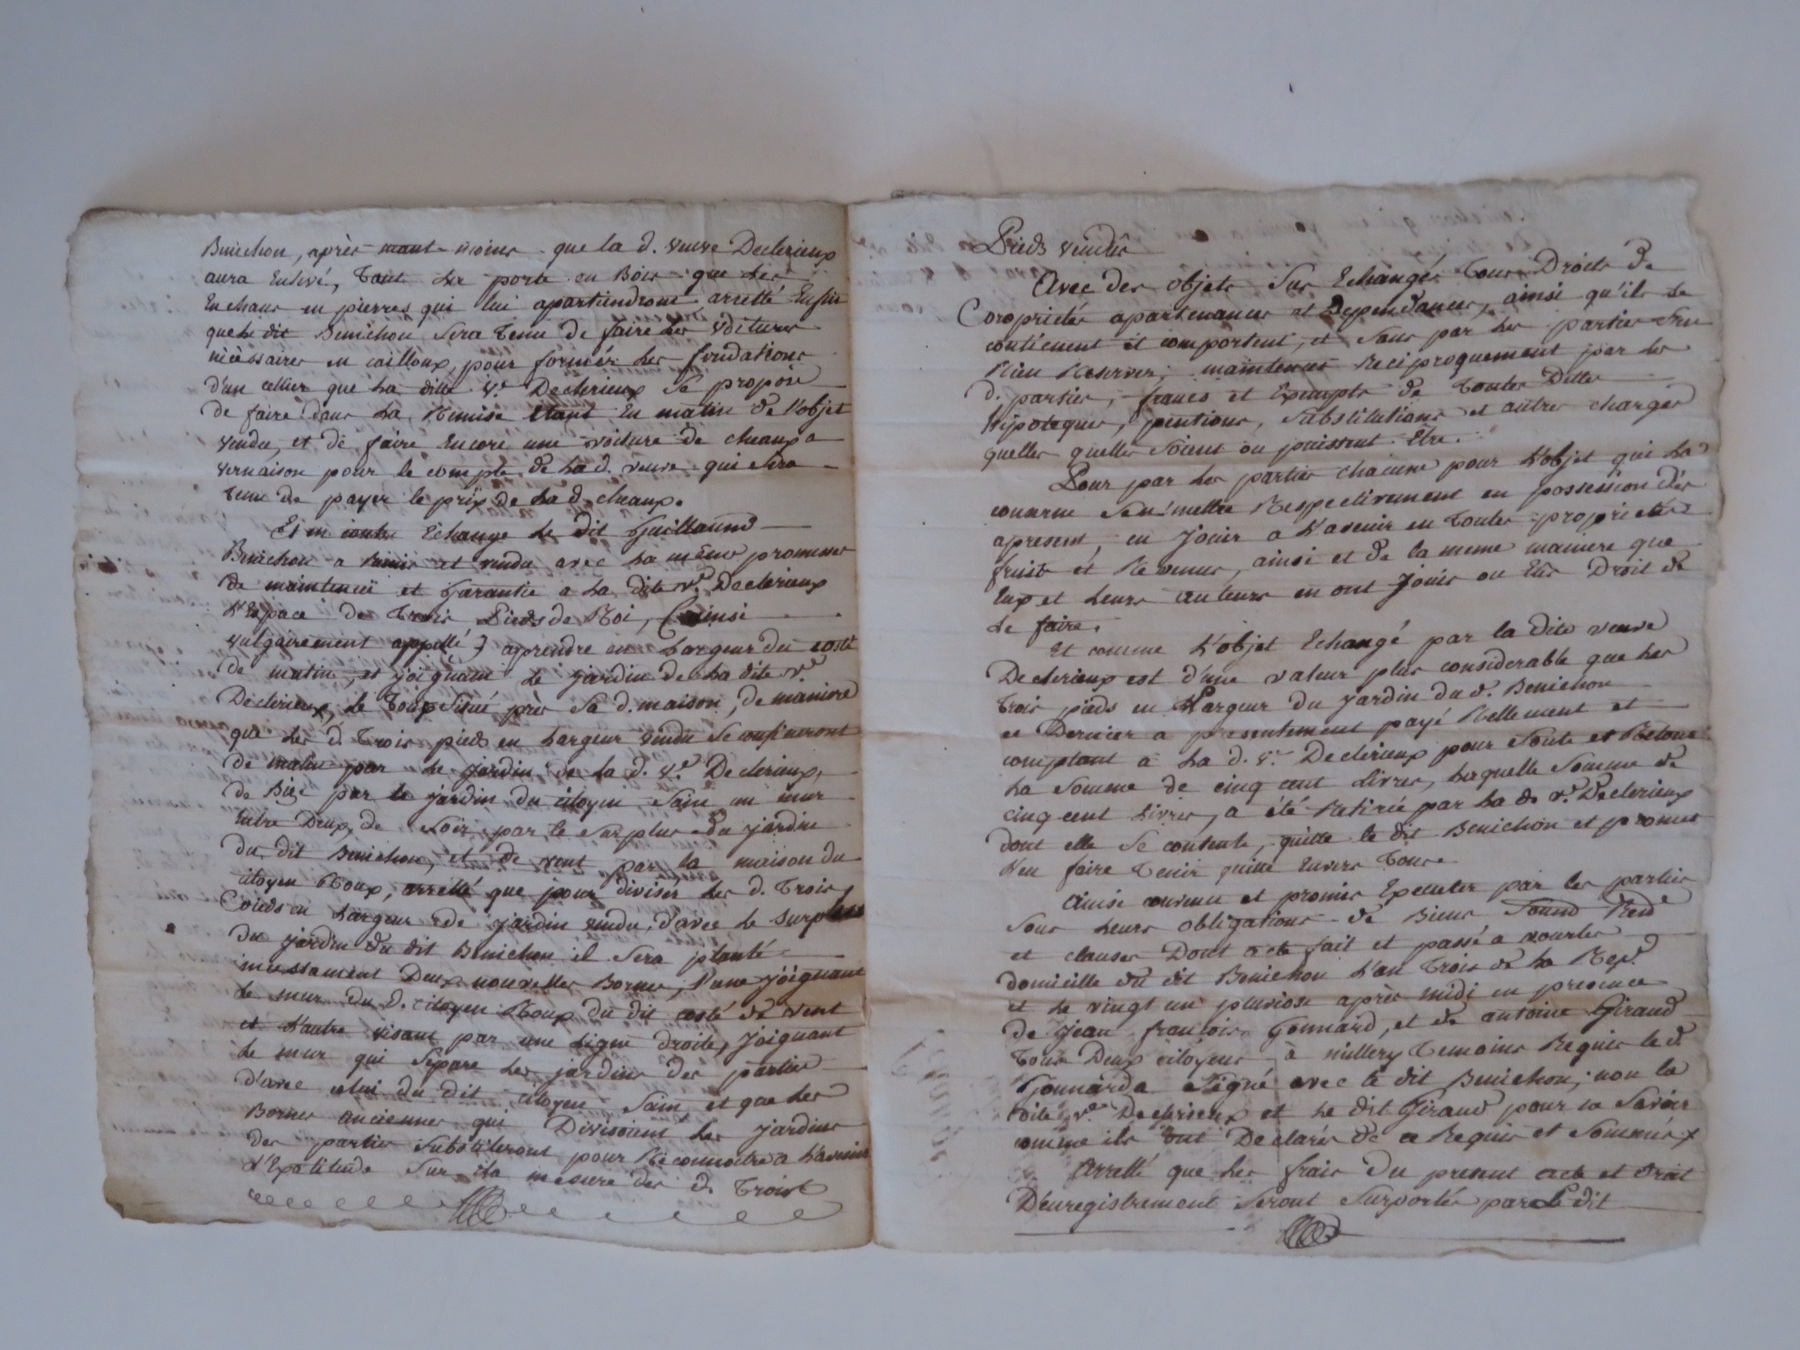 Benichon, après neant moins que la d. veuve Declerieux
aura Enlevé, tant les porte en Bois que les
En chans en pierres qui lui apartiendront arretté Enfin
que le dit Benichon sera tenu de faire les voitures
nécessaires en cailloux, pour former les fondations
d'un cellier que la ditte v.e Declerieux se propose
de faire dans la Remise étant En matin de l'objet
vendu, et de faire Encore une voiture de chaux a
vernaison pour le compte de la d. veuve qui sera
tenue de payer le prix de la d. chaux.
Et en contre Echange le dit Guillaume
Benichon a remis et vendu avec la même promesse
de maintenüe et Garantie a la dite v.e Declerieux
l'Espace de trois Pieds de Roi, (ainsi
vulgairement appellé) aprendre en Largeur du costé
de matin, et joignant le jardin de la dite v.e
Declerieux, le tout situé près sa d. maison, de maniere
que les d. trois pieds en largeur vendu se confineront
de matin par le jardin de la d. v.e Declerieux,
de Bize par le jardin du citoyen Sain un mur
Entre Deux, de soir par le surplus du jardin
du dit Benichon, et de vent par la maison du
citoyen Roux, arretté que pour diviser les d. trois
pieds en largeur de jardin vendu, d'avec le surplus
du jardin du dit Benichon il sera planté
incessament Deux nouvelles Bornes, l'une joignant
le mur du d. citoyen Roux du dit costé de vent
et l'autre visant par une Ligne droite, joignant
le mur qui separe les jardins des parties
d'avec celui du dit citoyen Sain et que les
Bornes anciennes qui Divisoient les jardins
des parties subsisteront pour Reconnoitre a l'avenir
l'Exactitude sur la mesure des d. trois
Pieds vendus
Avec des objets sus Echangés tous Droits de
Coropriétés apartenances et Dependances, ainsi qu'ils se
contienent et comportent, et sans par les parties s'en
Rien Reserver; maintenues Reciproquement par les
d. parties, francs et Exempts de toutes Dettes
hipoteques, pentions, substitutions et autres charges
quelles quelles soient ou puissent Etre.
Pour par les parties chacune pour l'objet qui la
concerne se mettre Respectivement en possession d'es
apresent, en jouir a l'avenir en toutes propriétés
fruits et Revenus, ainsi et de la meme maniere que
Eux et leurs auteurs en ont jouis ou Eus Droit de
le faire.
Et comme l'objet Echangé par la dite veuve
Declerieux est d'une valeur plus considerable que les
trois pieds en Largeur du jardin du d. Benichon
ce Dernier a presentement payé Réellement et
comptant a la d. v.e Declerieux pour soute et Retour
la somme de cinq cent Livres, laquelle somme de
cinq cent Livres, a été Retirée par la d. v.e Declerieux
dont elle se contente, quitte le dit Benichon et promet
l'en faire tenir quitte Envers tous.
Ainsi convenu et promis Executer par les parties
sous leurs obligations de Biens
et clauses Dont acte fait et passé a vourles
domicille du dit Benichon l'an trois de la Rep.e
et le vingt un pluviose après midi en presence
de jean francois Gonnard, et de antoine Giraud
tous Deux citoyens à millery temoins Requis le d.
Gonnard a signé avec le dit Benichon; non la
dite v.e Declerieux et le dit Giraud pour ne savoir
comme ils ont Declarés de ce Requis et sommés
Arretté que les frais du present acte et droit
D'enregistrement seront suportés par le dit